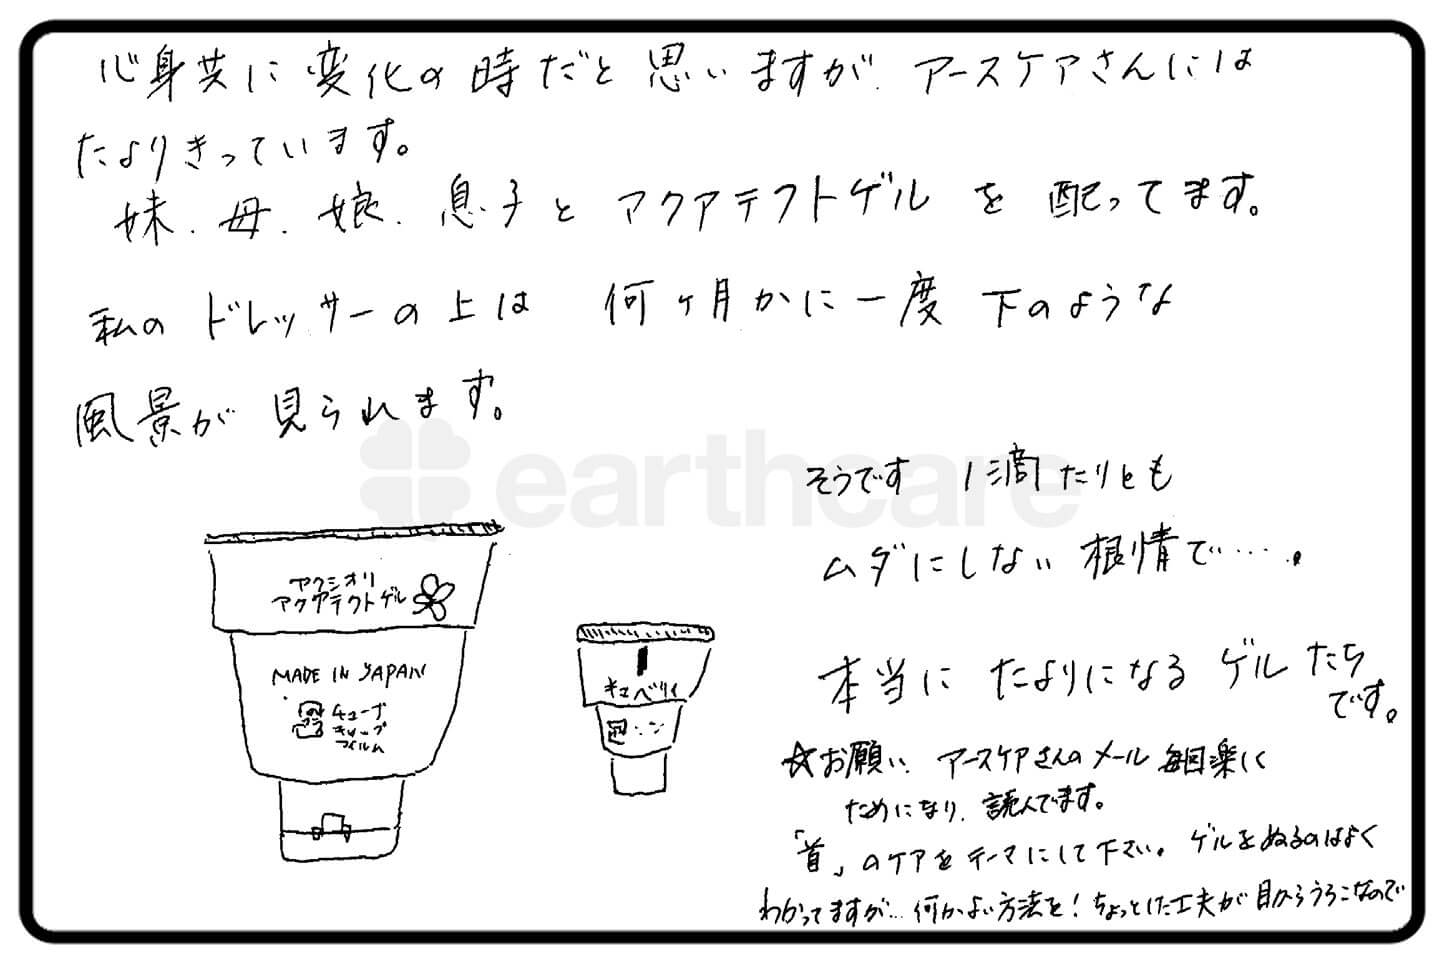 心身共に変化の時だと思いますが、アースケアさんには
たよりきっています。
妹、母、娘、息子とアクアテクトゲルを配ってます。
私のドレッサーの上は 何ヶ月かに一度 下のような
風景が見られます。
earthcare
そうです 1滴たりとも
ムダにしない根情で……。
本当にたよりになるゲルたち
です。
ヤクシオリ
アクアテクトゲル
MADE IN JAPAN
プラ
チューブ
キャップ
フィルム
キュベリィ
☆お願い、アースケアさんのメール 毎回楽しく
ためになり、読んでます。
「首」のケアをテーマにして下さい。ゲルをぬるのはよく
わかってますが…何かよい方法を！ちょっとした工夫が目からうろこなので